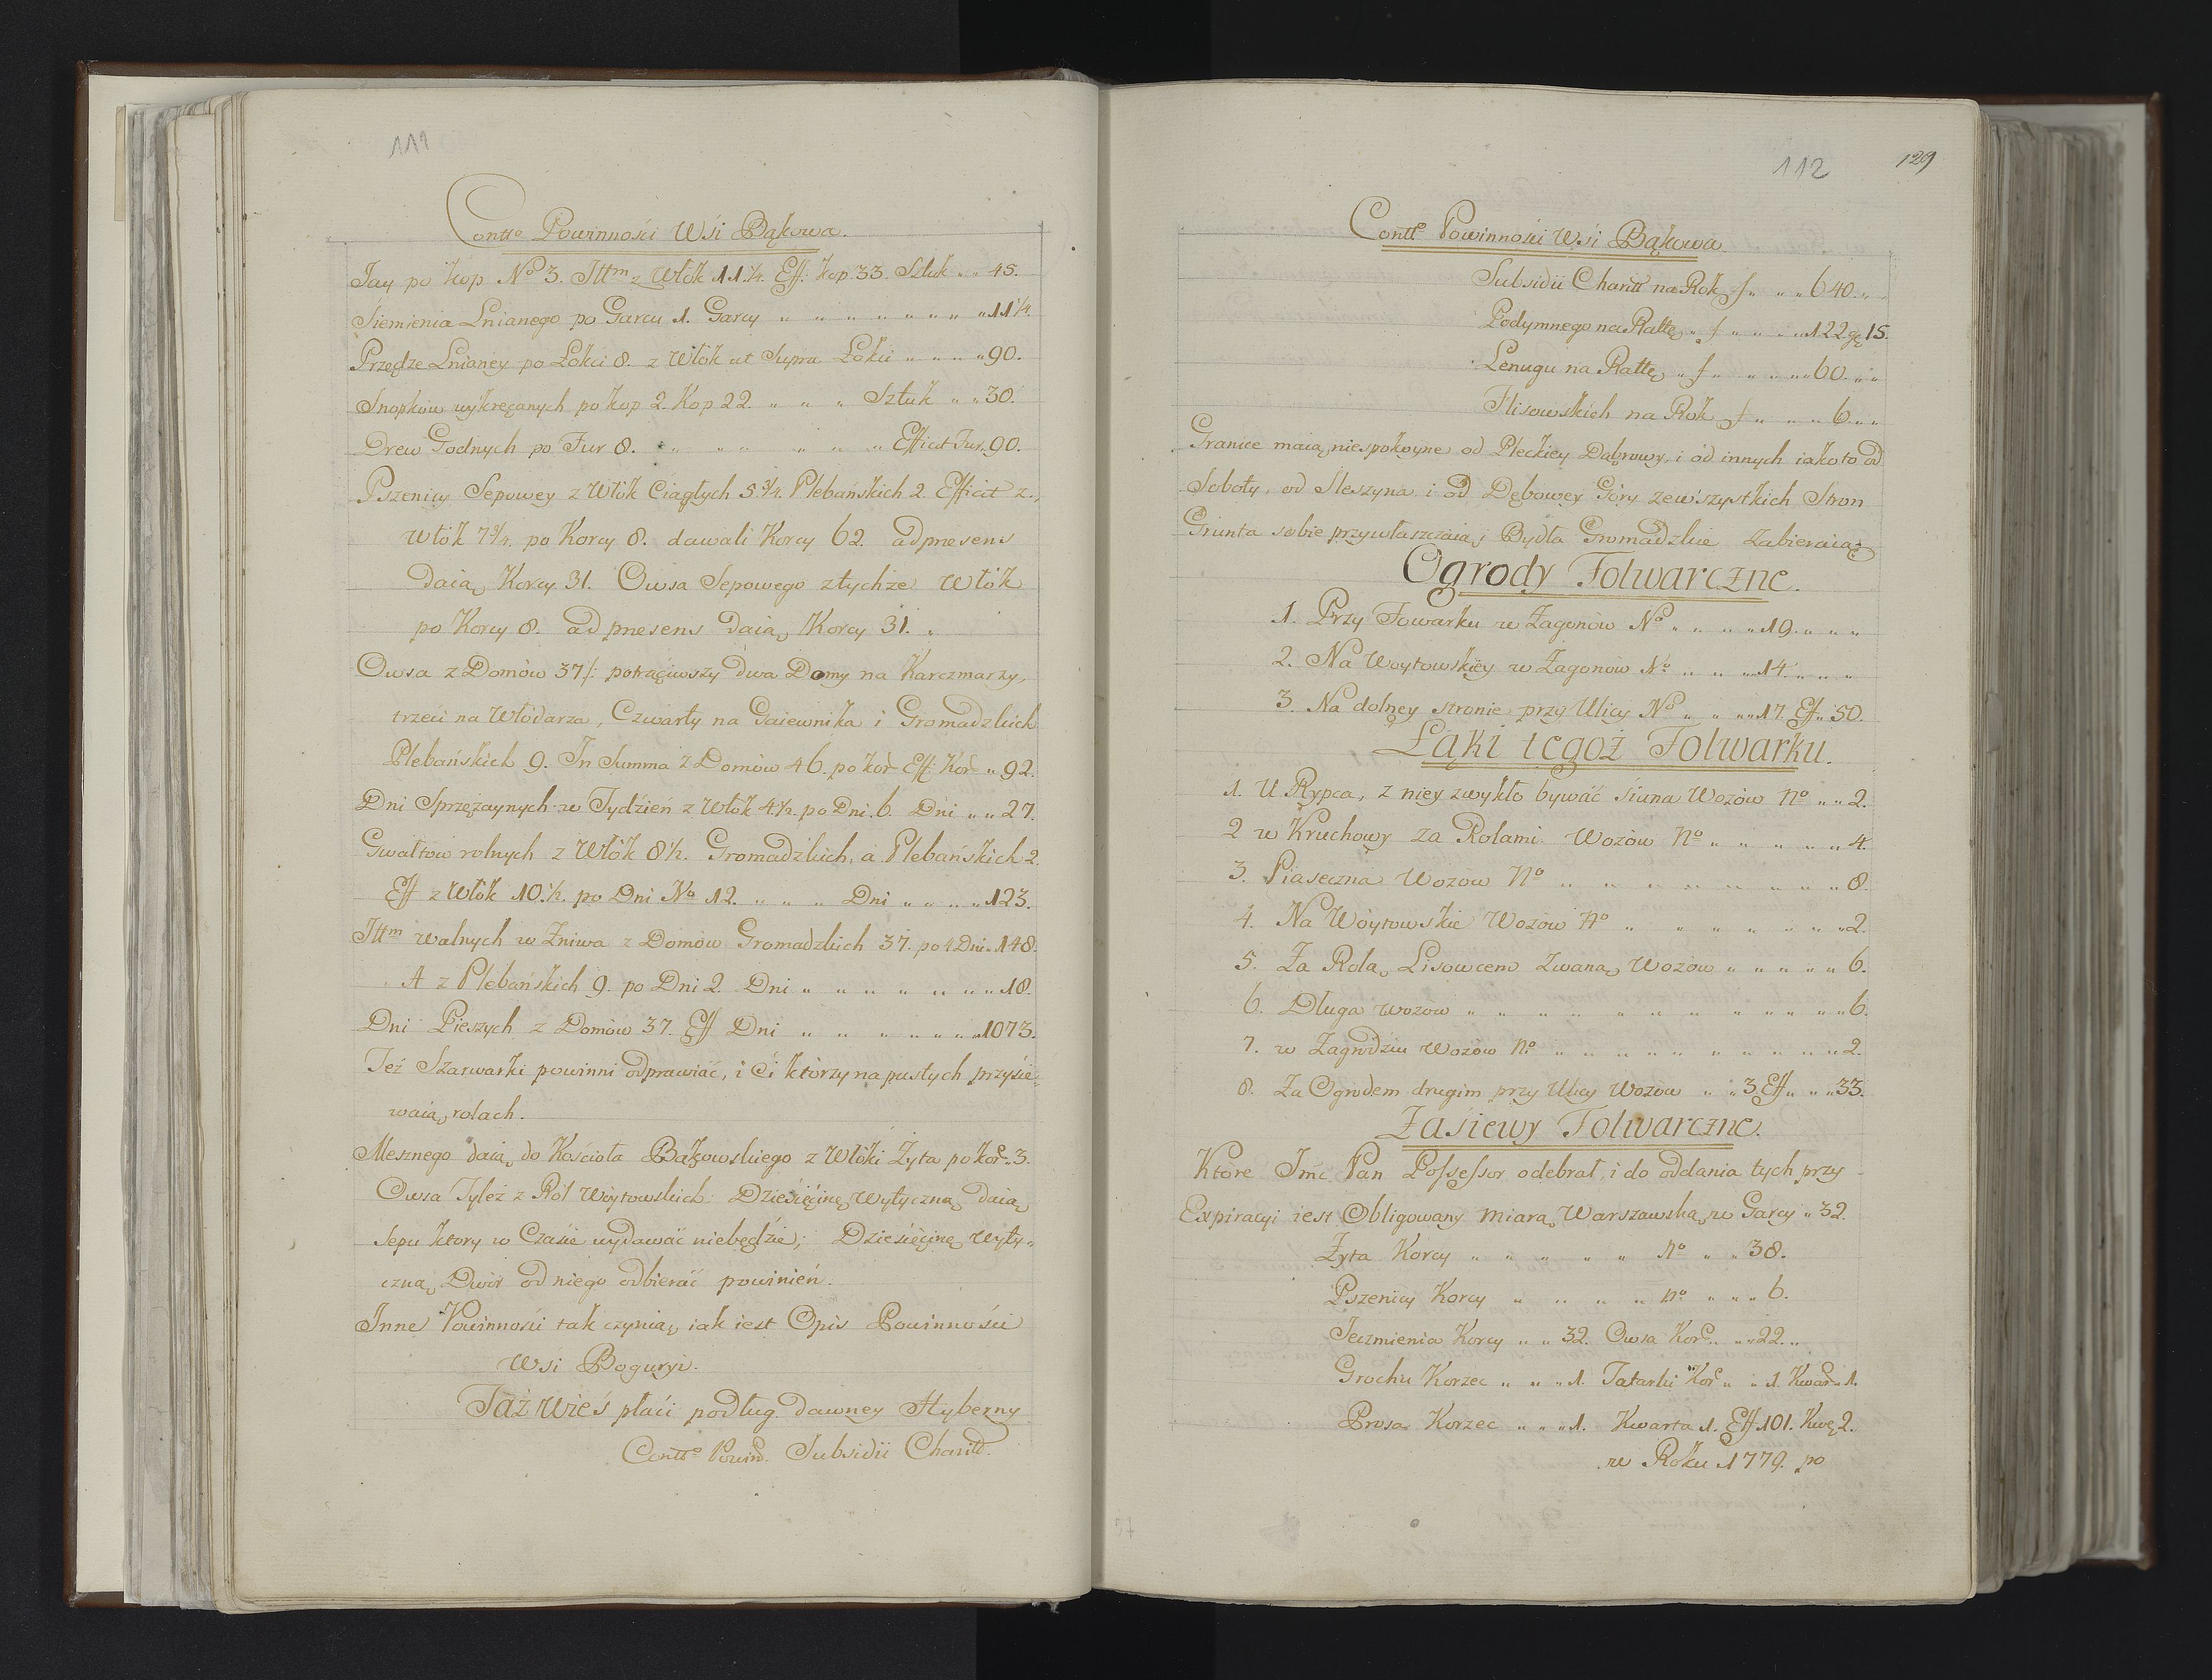 111
Contto Powinnosci Wsi Bąkowa.
Jay po kop No 3. Ittm z Włok 11.¼. Eff. kop. 33. Sztuk „ „ 45.
Siemienia Lnianego po Garcu 1. Garcy „ „ „ „ „ „ „ „ 11¼.
Przędze Lnianey po Łokci 8. z Włók ut Supra Łokci „ „ „ „ 90.
Snopkow wykręcanych po kop 2. Kop 22. „ „ „ Sztuk „ „ 30.
Drew Godnych po Fur 8. „ „ „ „ „ „ „ Efficit Fur. 90.
Pszenicy Sepowey z Włók Ciągłych 5.¾. Plebańskich 2. Efficit z.,
Włók 7¾. po Korcy 8. dawali Korcy 62. ad presens
daią Korcy 31. Owsa Sepowego z tychże Włók
po Korcy 8. ad presens daią Korcy 31. „
Owsa z Domów 37 /: potrąciwszy dwa Domy na Karczmarzy,
trzeci na Włódarza, Czwarty na Gaiewnika i Gromadzkich
Plebańskich 9. In Summa z Domów 46. po kor Eff: Kor „ 92.
Dni Sprzężaynych w Tydzień z Włók 4.½. po Dni. 6. Dni „ „ 27.
Gwałtow rolnych z Włók 8½. Gromadzkich, a Plebańskich 2.
Eff z Włók 10.½. po Dni No 12. „ „ „ Dni „ „ „ „ 123.
Ittm walnych w Żniwa z Domów Gromadzkich 37. po 4 Dni „ 148.
A z Plebańskich 9. po Dni 2. Dni „ „ „ „ „ „ „ „ 18.
Dni Pieszych z Domów 37. Eff Dni „ „ „ „ „ „ „ 1073.
Też Szarwarki powinni odprawiać, i Ci ktorzy na pustych przysie„
waią rolach.
Mesznego daią do Kościoła Bąkowskiego z Włóki Żyta po kor. 3.
Owsa Tyleż z Ról Wóytowskich: Dziesięcinę Wytyczną daią
Sepu ktory w Czasie wydawać niebędzie; Dziesięcinę wyty„
czną Dwór od niego odbierać powinień.
Inne Powinności tak czynią iak iest Opis Powinności
Wsi Boguryi.
Taż Wieś płaci podług dawney Hyberny
Contto Powin. Subsidii Charitt.
112 129
Contto Powinności Wsi Bąkowa
Subsidii Charitt na Rok f „ „ „ 640. „
Podymnego na Rattę „ f „ „ „ „ 122 gr 15.
Lenugu na Rattę „ f „ „ „ „ 60. „ „
Flisowskich na Rok f „ „ „ „ 6. „ „
Granice maią niespokoyne od Pleckiey Dąbrowy, i od innych iako to od
Soboty, od Sleszyna i od Dębowey Góry zewszystkich Stron
Grunta sobie przywłaszczaią; Bydła Gromadzkie zabieraią.
Ogrody Folwarczne.
1. Przy Fowarku w Zagonów No „ „ „ „ 19. „ „ „
2. Na Woytowskiey w Zagonow No. „ „ „ „ 14. „ „ „
3. Na dolney stronie przy Ulicy No „ „ „ „ 17. Eff „ 50.
Łąki tegoż Folwarku.
1. U Rypca, z niey zwykło bywać siana Wozów No „ „ 2.
2 w Kruchowy za Rolami. Wozów No „ „ „ „ „ 4.
3. Piaseczna Wozow No „ „ „ „ „ „ „ „ 8.
4. Na Wóytowskie Wozów No „ „ „ „ „ „ „ 2.
5. Za Rolą Lisowcem Zwaną Wozów „ „ „ „ „ 6.
6. Długa wozow „ „ „ „ „ „ „ „ „ „ „ 6.
7. w Zagrodziu Wozów No „ „ „ „ „ „ „ „ „ 2.
8. Za Ogrodem drugim przy Ulicy Wozow „ „ 3. Eff „ „ „ 33.
Zasiewy Folwarczne.
Ktore Imć Pan Possessor odebrał, i do oddania tych przy
Expiracyi iest Obligowany miarą Warszawską w Garcy „ 32.
Żyta Korcy „ „ „ „ „ No „ „ 38.
Pszenicy Korcy „ „ „ „ No „ „ „ 6.
Jęczmienia Korcy „ „ 32. Owsa Kor. „ „ 22. „
Grochu Korzec „ „ „ 1. Tatarki Kor „ „ 1. Kwar „ 1.
Prosa Korzec „ „ „ 1. Kwarta 1. Eff 101. Kwr. 2.
w Roku 1779. po